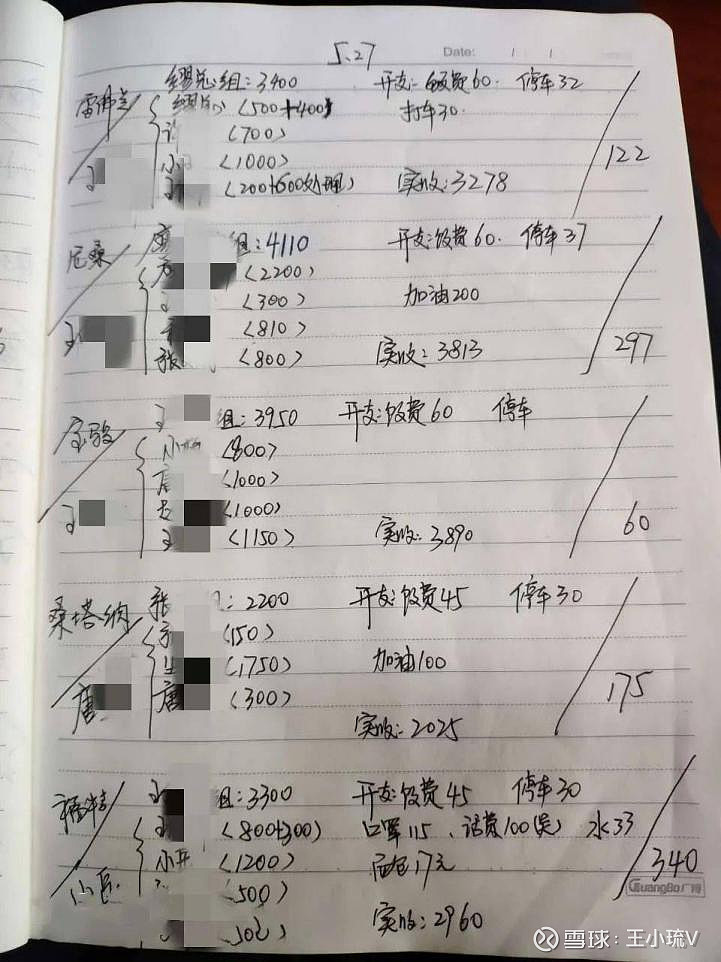 5.27
Date:
组:3400 开支:饭费60. 停车32
雷弗兰 (500+400) 打车30.
(700)
小 (1000) 122
王 (200+600处理) 实收:3278
组:4110 开支:饭费60. 停车37
尼桑 (2200)
(300) 加油200
王 (810)
张 (800) 实收:3813 297
王 组:3950 开支:饭费60 停车
宝骏 小 (800)
唐 (1000)
(1000)
王 王 (1150) 实收:3890 60
张 : 2200 开支:饭费45 停车30
桑塔纳 (150)
(1750) 加油100
唐 唐 (300) 175
实收:2025
王 组:3300 开支:饭费45 停车30
福特 王 (800+300) 口罩115、话费100(吴) 水33
小开 (1200) 面包17元 340
小臣 500)
实收:2960
GuangBo广博
雪球:王小琉V